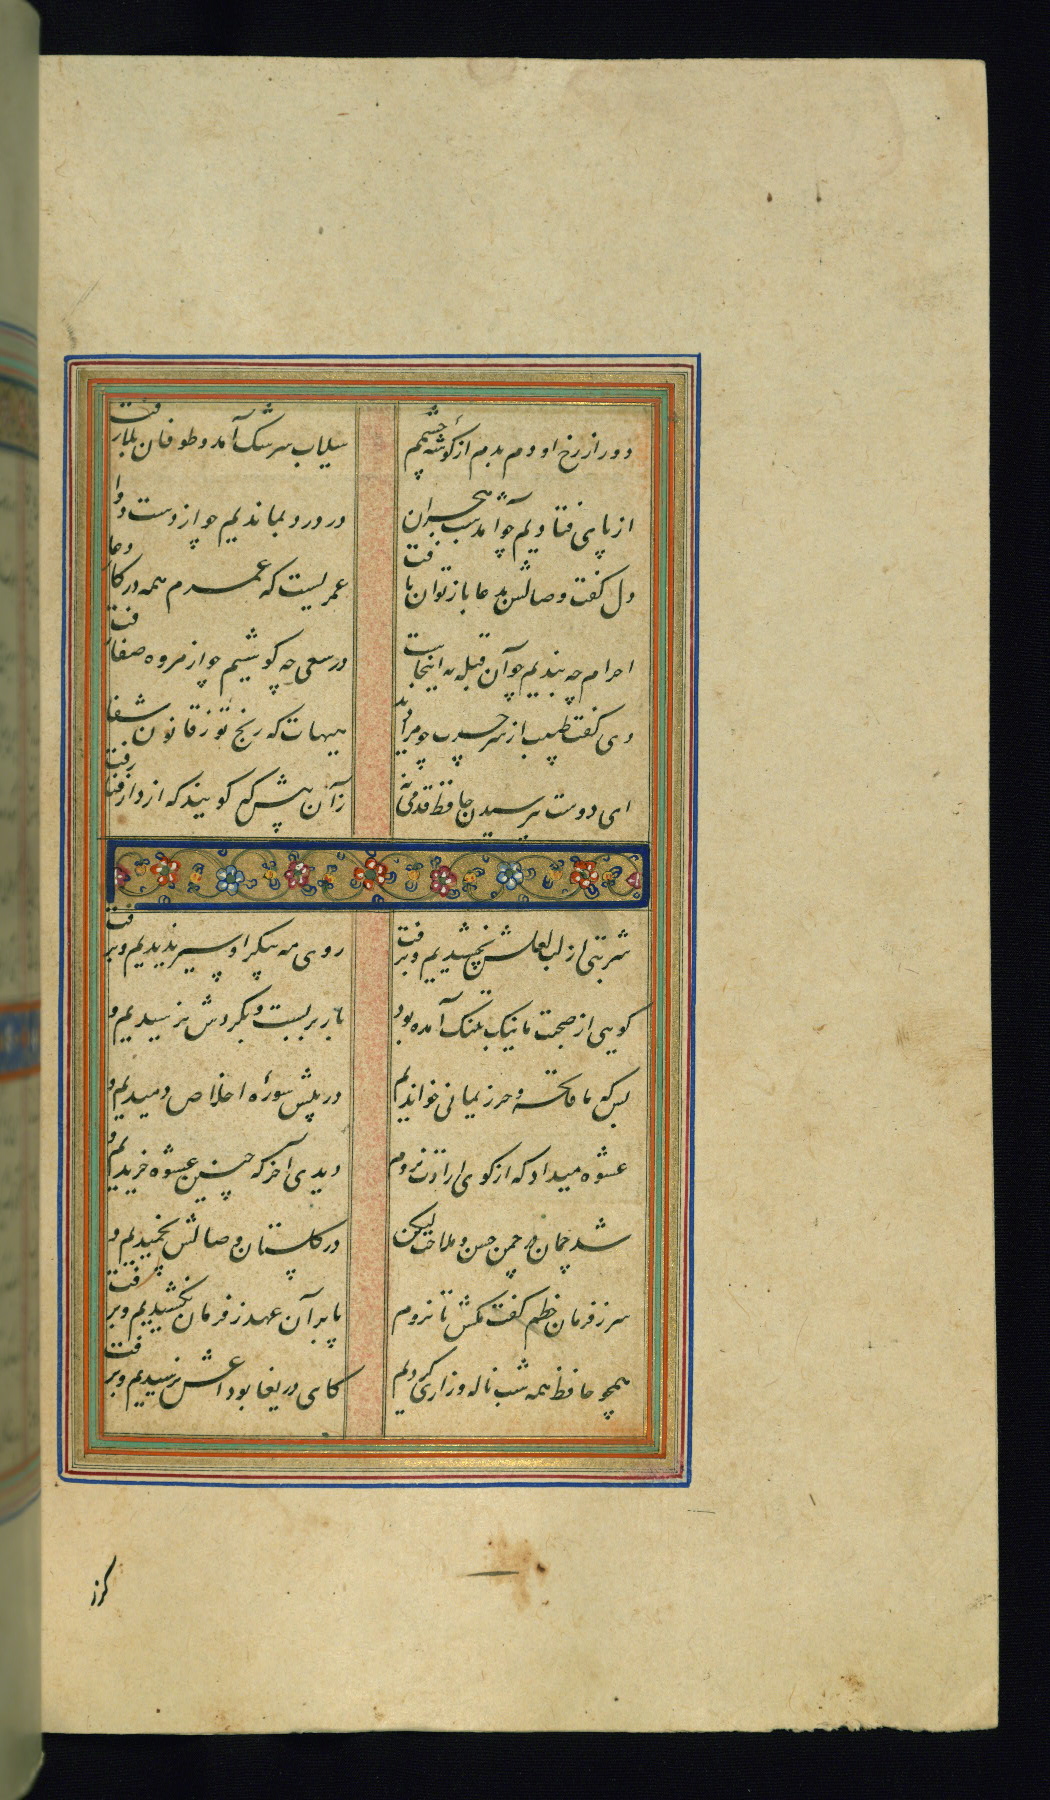 دور از رخ او دم بدم از کوشهٔ چشمم سیلاب سرشک آمد و طوفان بلا رفت
از پای فتادیم چو آمد شب هجران در درد بماندیم چو از دست دوا
دل کفت وصالش بدعا باز توان یافت عمریست که عمرم همه در کار دعا رفت
احرام چه بندیم چو آن قبله نه اینجاست در سعی چه کوشیم چو از مروه صفا
دی کفت طبیب از سر حسرت چو مرا دید هیهات که رنج تو ز قانون شفا رفت
ای دوست بپرسیدن حافظ قدمی نه زآن پیش که کویند که از دار فنا
شربتی از لب لعلش نچشیدیم و برفت روی مه پیکر او سیر ندیدیم و برفت
کویی از صحبت ما نیک بتنک آمده بود بار بربست و بکردش نرسیدیم و
بس که ما فاتحه و حرز یمانی خواندیم در پیش سورهٔ اخلاص دمیدیم و
عشوه میداد که از کوی ارادت نروم دیدی آخر که چنین عشوه خریدیم و
شد چمان در چمن حسن و ملاحت لیکن در کلستان وصالش نچمیدیم و
سر ز فرمان خطم کفت مکش تا نروم ما بر آن عهد ز فرمان نکشیدیم و برفت
همچو حافظ همه شب ناله و زاری کردیم کای دریغا بوداعش نرسیدیم و برفت
کرز